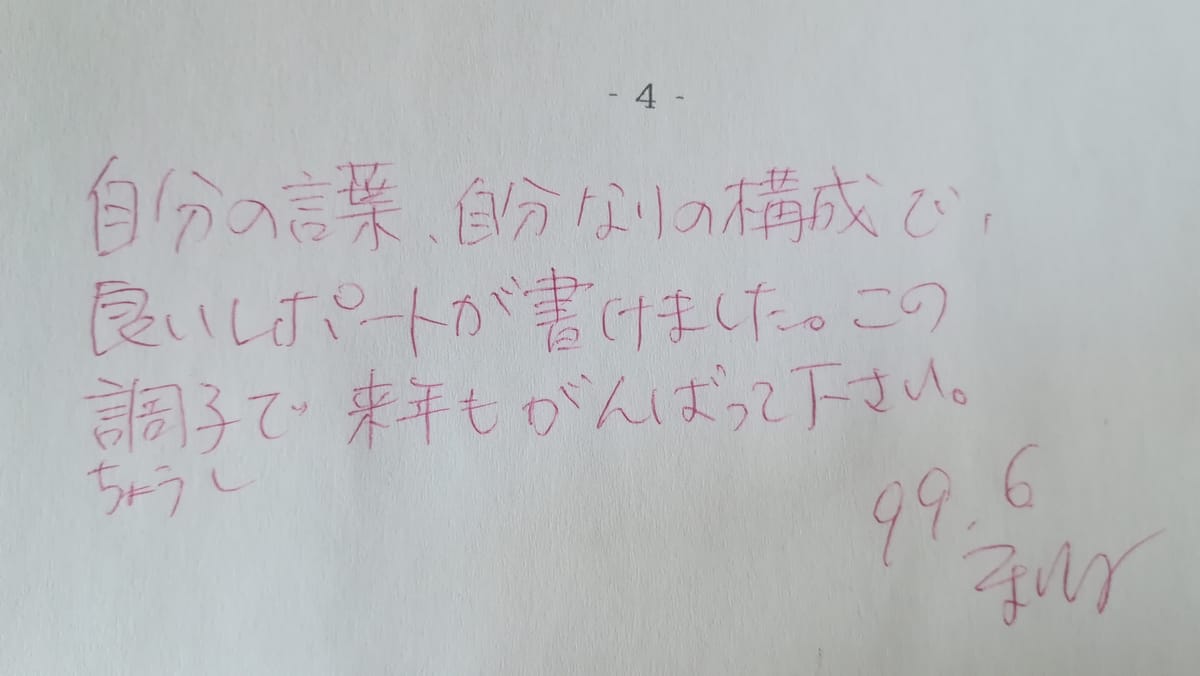 - 4 -
自分の言葉、自分なりの構成で、
良いレポートが書けました。この
調子で来年もがんばって下さい。
ちょうし
99.6